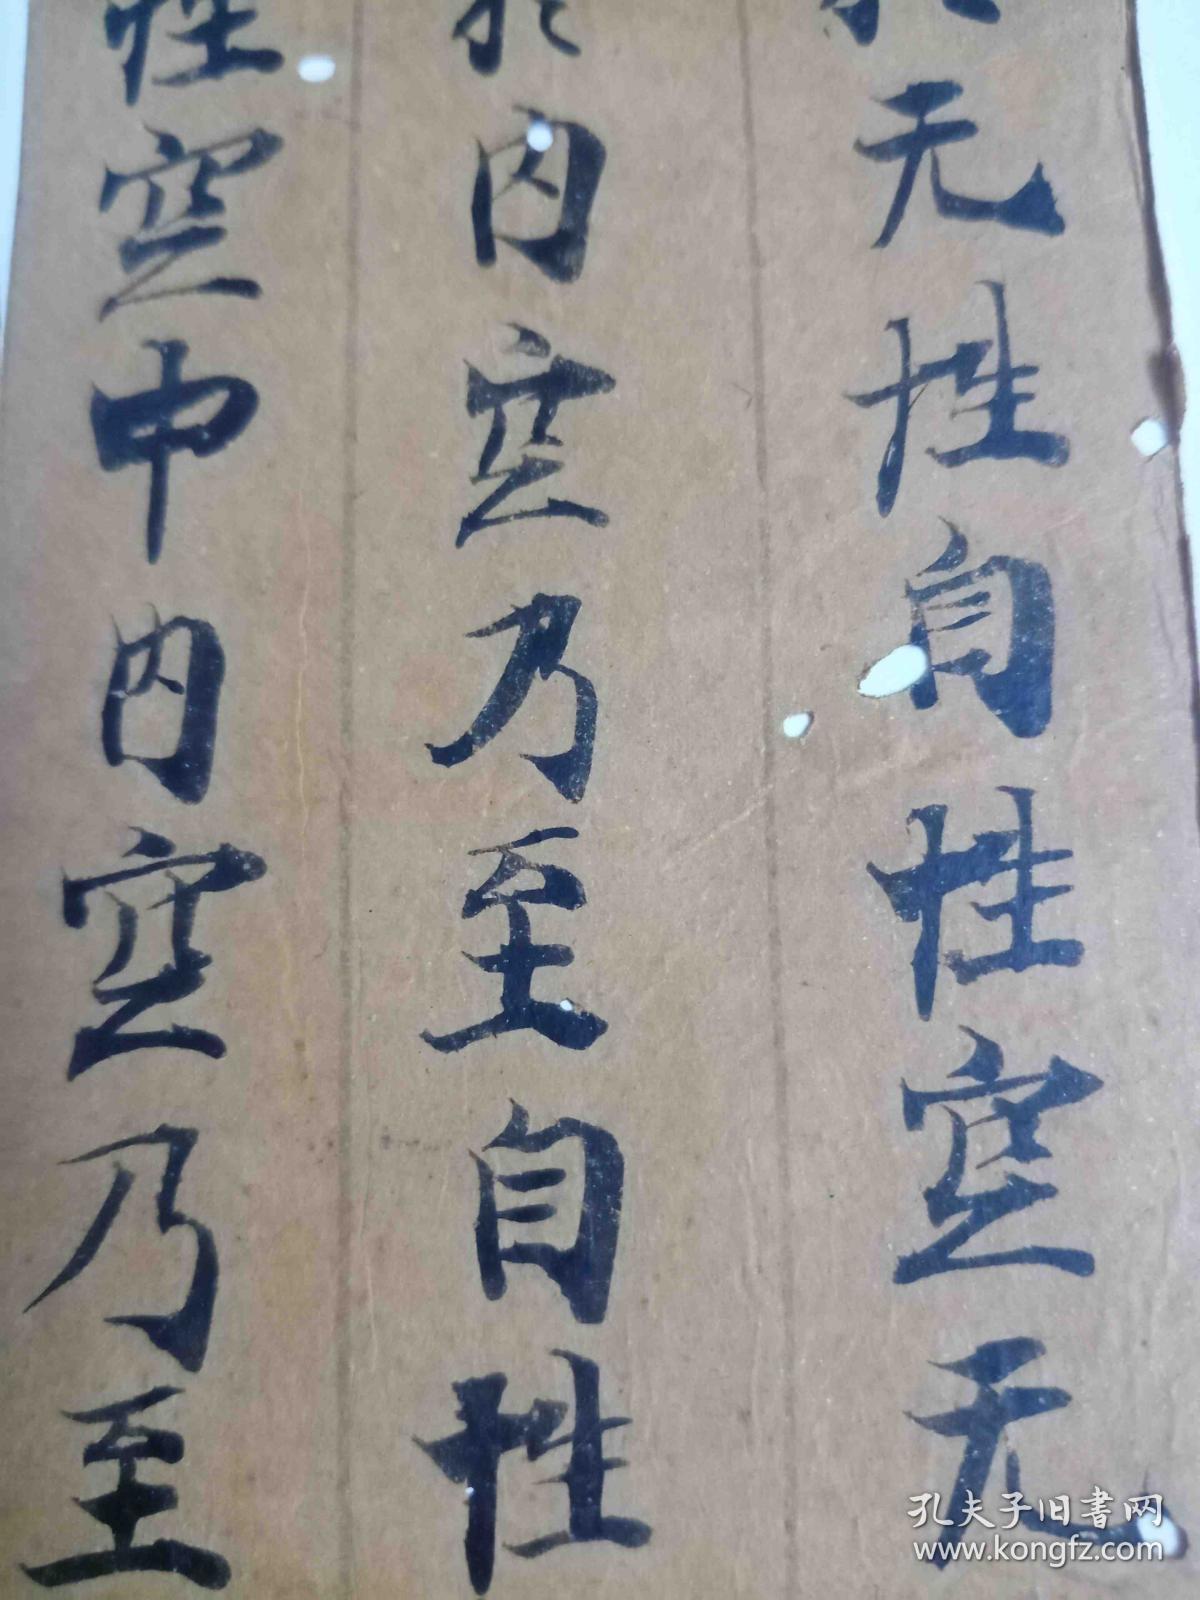 无性自性空无
於内空乃至自性
性空中内空乃至
孔夫子旧书网
www.kongfz.com